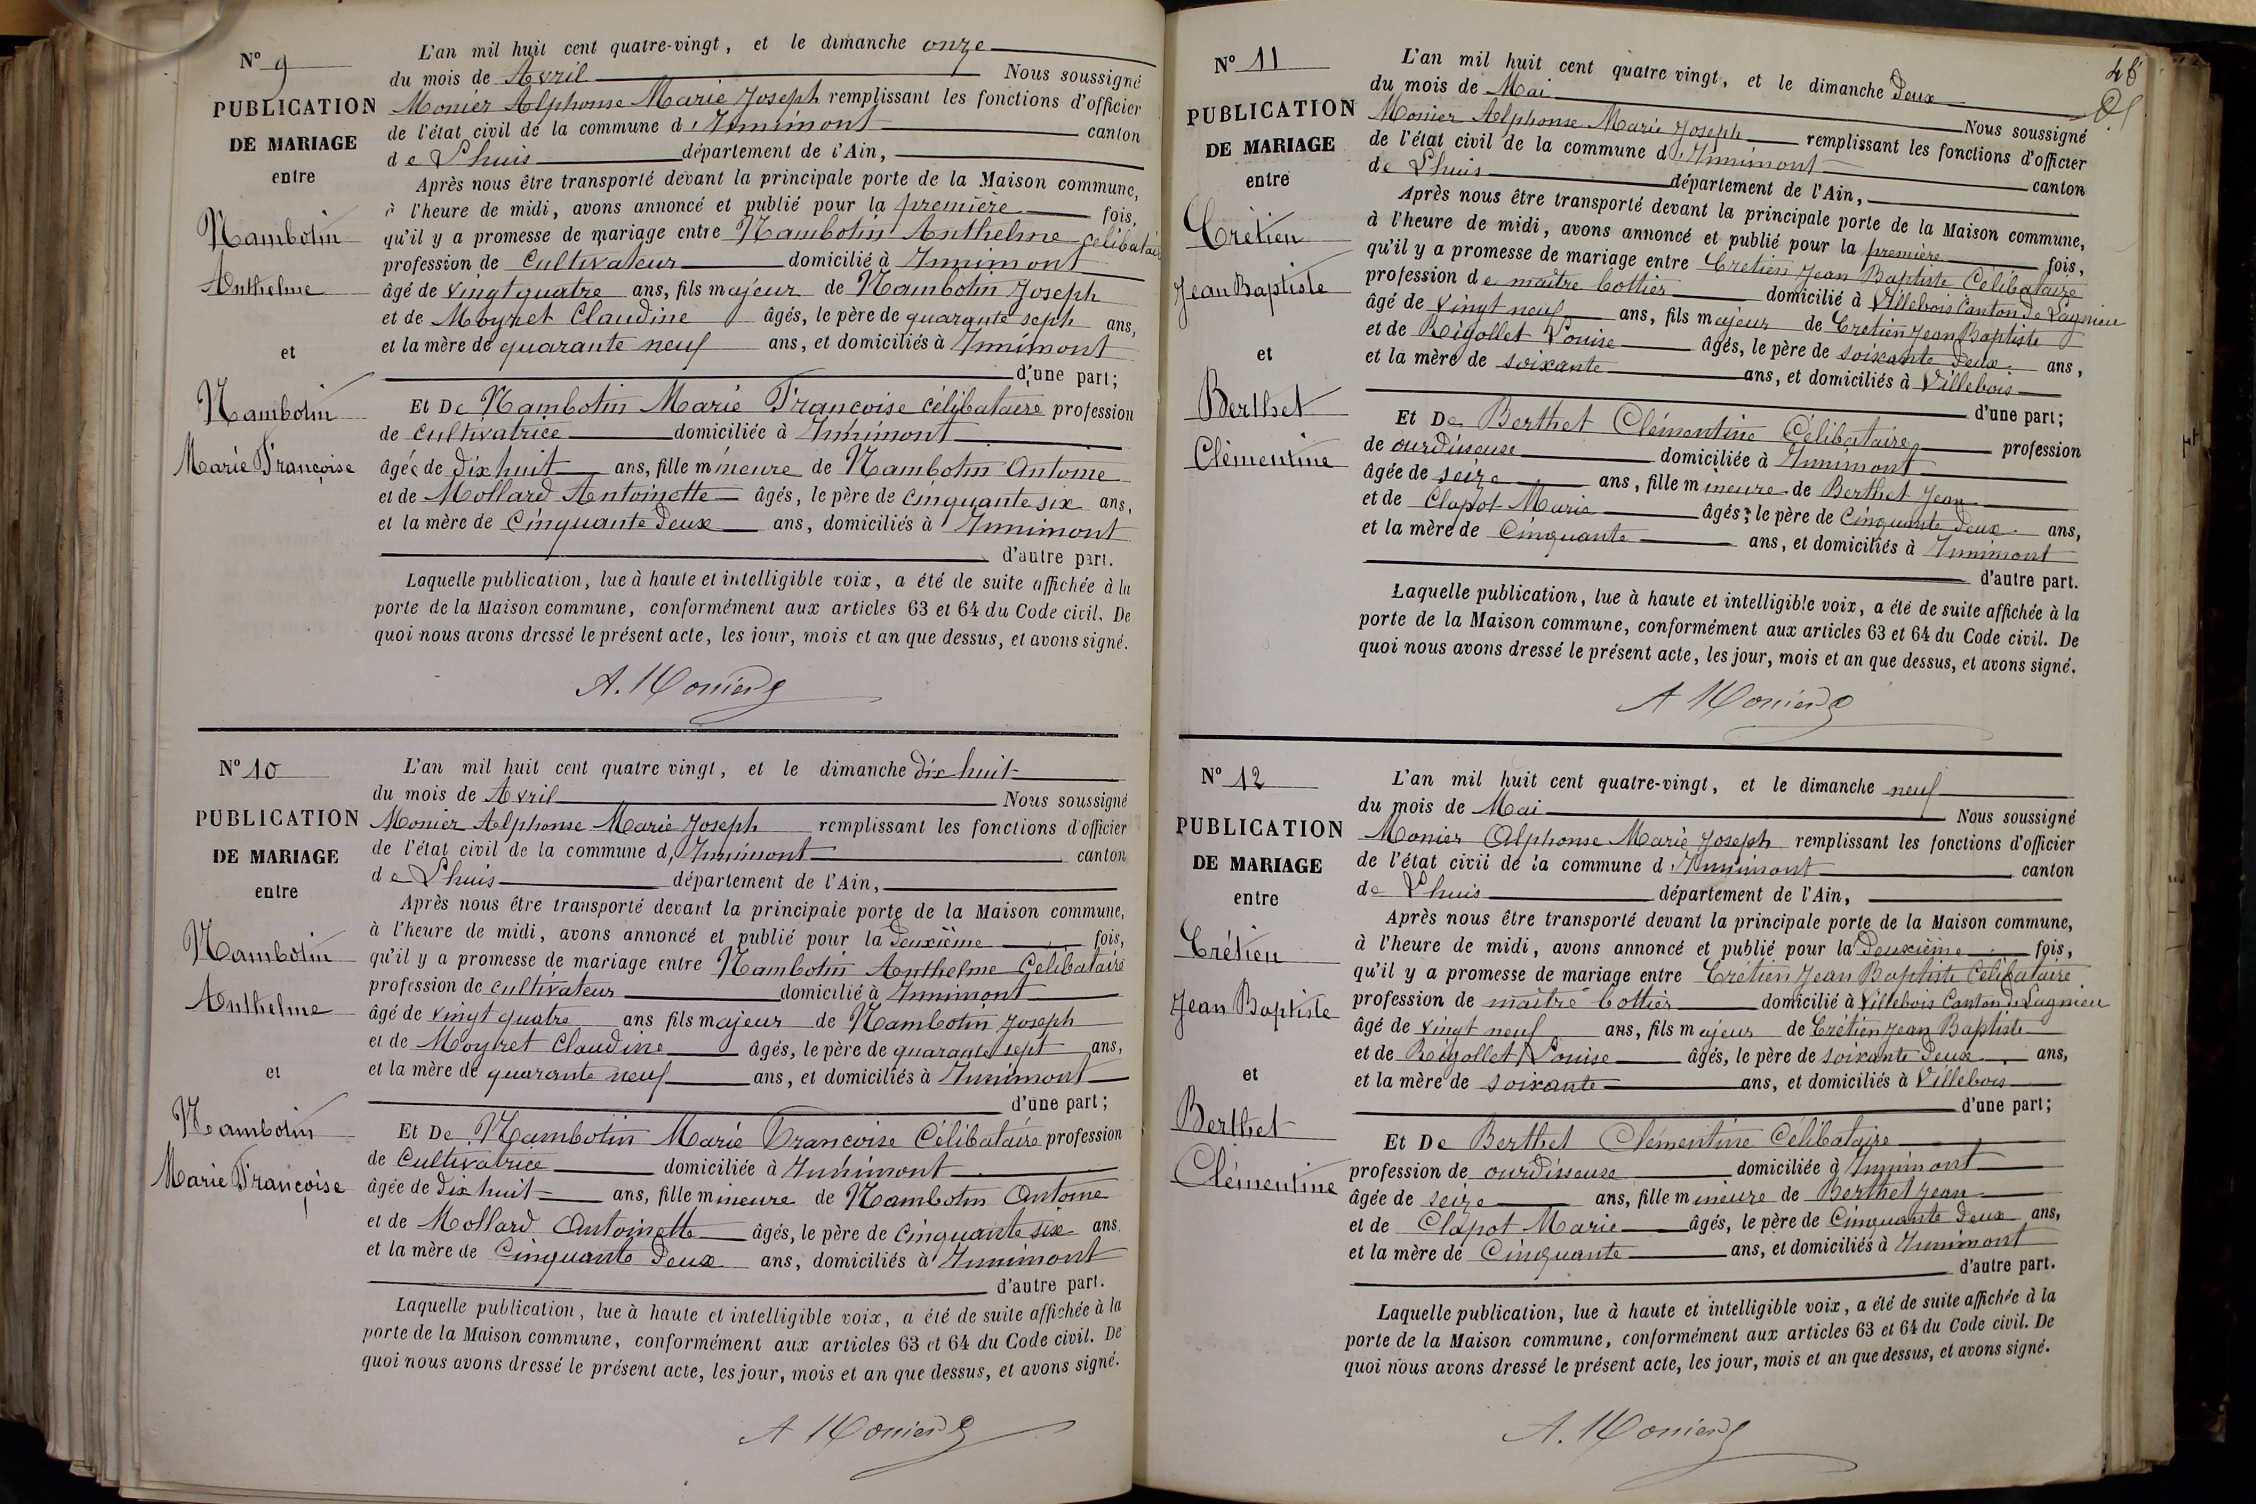 N° 9
PUBLICATION
DE MARIAGE
entre
Nambotin
Anthelme
et
Nambotin
Marie Françoise
L'an mil huit cent quatre-vingt, et le dimanche onze
du mois de Avril Nous soussigné
Monier Alphonse Marie Joseph remplissant les fonctions d'officier
de l'état civil de la commune d'Innimont canton
de Lhuis département de l'Ain,
Après nous être transporté devant la principale porte de la Maison commune,
à l'heure de midi, avons annoncé et publié pour la première fois,
qu'il y a promesse de mariage entre Nambotin Anthelme célibataire
profession de cultivateur domicilié à Innimont
âgé de vingt quatre ans, fils majeur de Nambotin Joseph
et de Moyret Claudine âgés, le père de quarante sept ans,
et la mère de quarante neuf ans, et domiciliés à Innimont
d'une part;
ET De Nambotin Marie Françoise célibataire profession
de cultivatrice domiciliée à Innimont
âgée de dix huit ans, fille mineure de Nambotin Antoine
et de Mollard Antoinette âgés, le père de cinquante six ans,
et la mère de cinquante deux ans, domiciliés à Innimont
d'autre part.
Laquelle publication, lue à haute et intelligible voix, a été de suite affichée à la
porte de la Maison commune, conformément aux articles 63 et 64 du Code civil. De
quoi nous avons dressé le présent acte, les jour, mois et an que dessus, et avons signé.
A. Monier
N° 10
PUBLICATION
DE MARIAGE
entre
Nambotin
Anthelme
et
Nambotin
Marie Françoise
L'an mil huit cent quatre vingt, et le dimanche dix huit
du mois de Avril Nous soussigné
Monier Alphonse Marie Joseph remplissant les fonctions d'officier
de l'état civil de la commune d'Innimont canton
de Lhuis département de l'Ain,
Après nous être transporté devant la principale porte de la Maison commune,
à l'heure de midi, avons annoncé et publié pour la deuxième fois,
qu'il y a promesse de mariage entre Nambotin Anthelme Célibataire
profession de cultivateur domicilié à Innimont
âgé de vingt quatre ans fils majeur de Nambotin Joseph
et de Moyret Claudine âgés, le père de quarante sept ans,
et la mère de quarante neuf ans, et domiciliés à Innimont
d'une part;
ET De Nambotin Marie Francoise Célibataire profession
de Cultivatrice domiciliée à Innimont
âgée de dix huit ans, fille mineure de Nambotin Antoine
et de Mollard Antoinette âgés, le père de cinquante six ans
et la mère de Cinquante deux ans, domiciliés à Innimont
d'autre part.
Laquelle publication, lue à haute et intelligible voix, a été de suite affichée à la
porte de la Maison commune, conformément aux articles 63 et 64 du Code civil. De
quoi nous avons dressé le présent acte, les jour, mois et an que dessus, et avons signé.
A Monier
N° 11
PUBLICATION
DE MARIAGE
entre
Crétien
Jean Baptiste
et
Berthet
Clémentine
L'an mil huit cent quatre vingt, et le dimanche deux
du mois de Mai Nous soussigné
Monier Alphonse Marie Joseph remplissant les fonctions d'officier
de l'état civil de la commune d'Innimont canton
de Lhuis département de l'Ain,
Après nous être transporté devant la principale porte de la Maison commune,
à l'heure de midi, avons annoncé et publié pour la première fois,
qu'il y a promesse de mariage entre Crétien Jean Baptiste Célibataire
profession de maître Cottier domicilié à Villebois Canton de Lagnieu
âgé de vingt neuf ans, fils majeur de Crétien Jean Baptiste
et de Rigollet Louise âgés, le père de soixante deux ans,
et la mère de soixante ans, et domiciliés à Villebois
d'une part;
ET De Berthet Clémentine Célibataire profession
de ourdisseuse domiciliée à Innimont
âgée de seize ans, fille mineure de Berthet Jean
et de Clapot Marie âgés; le père de Cinquante deux ans,
et la mère de Cinquante ans, et domiciliés à Innimont
d'autre part.
Laquelle publication, lue à haute et intelligible voix, a été de suite affichée à la
porte de la Maison commune, conformément aux articles 63 et 64 du Code civil. De
quoi nous avons dressé le présent acte, les jour, mois et an que dessus, et avons signé.
A Monier
N° 12
PUBLICATION
DE MARIAGE
entre
Crétien
Jean Baptiste
et
Berthet
Clémentine
L'an mil huit cent quatre-vingt, et le dimanche neuf
du mois de Mai Nous soussigné
Monier Alphonse Marie Joseph remplissant les fonctions d'officier
de l'état civil de la commune d'Innimont canton
de Lhuis département de l'Ain,
Après nous être transporté devant la principale porte de la Maison commune,
à l'heure de midi, avons annoncé et publié pour la Deuxième fois,
qu'il y a promesse de mariage entre Crétien Jean Baptiste Célibataire
profession de maître Cottier domicilié à Villebois Canton de Lagnieu
âgé de vingt neuf ans, fils majeur de Crétien Jean Baptiste
et de Rigollet Louise âgés, le père de soixante deux ans,
et la mère de soixante ans, et domiciliés à Villebois
d'une part;
ET De Berthet Clémentine Célibataire
profession de ourdisseuse domiciliée à Innimont
âgée de seize ans, fille mineure de Berthet Jean
et de Clapot Marie âgés, le père de Cinquante deux ans,
et la mère de Cinquante ans, et domiciliés à Innimont
d'autre part.
Laquelle publication, lue à haute et intelligible voix, a été de suite affichée à la
porte de la Maison commune, conformément aux articles 63 et 64 du Code civil. De
quoi nous avons dressé le présent acte, les jour, mois et an que dessus, et avons signé.
A. Monier